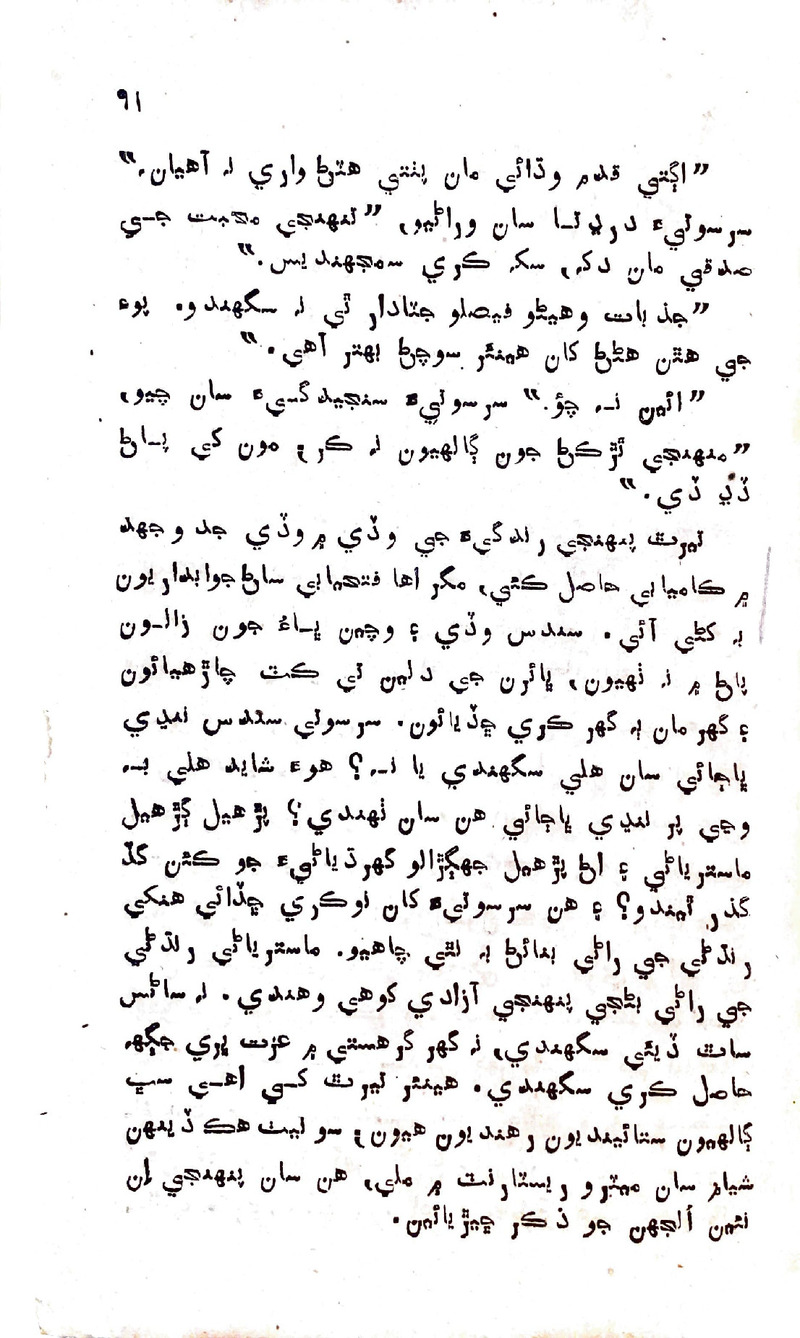 ٩١
”اڳتي قدم وڌائي مان پٺتي هٽڻ واري نہ آهيان.“
سرسوتيءَ درڍتا سان وراڻيو، ”تنهنجي محبت جي
صدقي مان دک، سک ڪري سمجهنديس.“
”جذبات وهيڻو فيصلو جٽادار ٿي نہ سگهندو. پوءِ
جي هٿن هڻڻ کان هينئر سوچڻ بهتر آهي.“
”ائين نہ چؤ.“ سرسوتيءَ سنجيدگيءَ سان چيو،
”منهنجي ٿڙڪڻ جون ڳالهيون نہ ڪر، مون کي پاڻ
ڏڍ ڏي.“
تيرٿ پنهنجي زندگيءَ جي وڏي ۾ وڏي جدوجهد
۾ ڪاميابي حاصل ڪئي، مگر اها فتحيابي ساڻ جوابداريون
بہ کڻي آئي. سندس وڏي ۽ وچين ڀاءُ جون زالون
پاڻ ۾ نہ ٺهيون، ڀائرن جي دلين تي ڪٽ چاڙهيائون
۽ گهر مان ٻہ گهر ڪري ڇڏيائون. سرسوتي سندس ننڍي
ڀاڄائي سان هلي سگهندي يا نہ؟ هوءَ شايد هلي بہ
وڃي پر ننڍي ڀاڄائي هن سان ٺهندي؟ پڙهيل ڳڙهيل
ماسترياڻي ۽ اڻ پڙهيل جهڳڙالو گهرڌياڻيءَ جو ڪٿن گڏ
گذر ٿيندو؟ ۽ هن سرسوتيءَ کان نوڪري ڇڏائي هنکي
رنڌڻي جي راڻي بنائڻ بہ نٿي چاهيو. ماسترياڻي رنڌڻي
جي راڻي بڻجي پنهنجي آزادي کوهي وهندي. نہ ساڻس
ساٿ ڏيئي سگهندي، نہ گهر گرهستي ۾ عزت ڀري جڳهہ
حاصل ڪري سگهندي. هينئر تيرٿ کي اهي سڀ
ڳالهيون ستائينديون رهنديون هيون، سو نيٺ هڪ ڏينهن
شيام سان ميٽرو ريسٽارنٽ ۾ ملي، هن سان پنهنجي اِن
نئين اُلجهن جو ذڪر ڇيڙيائين.